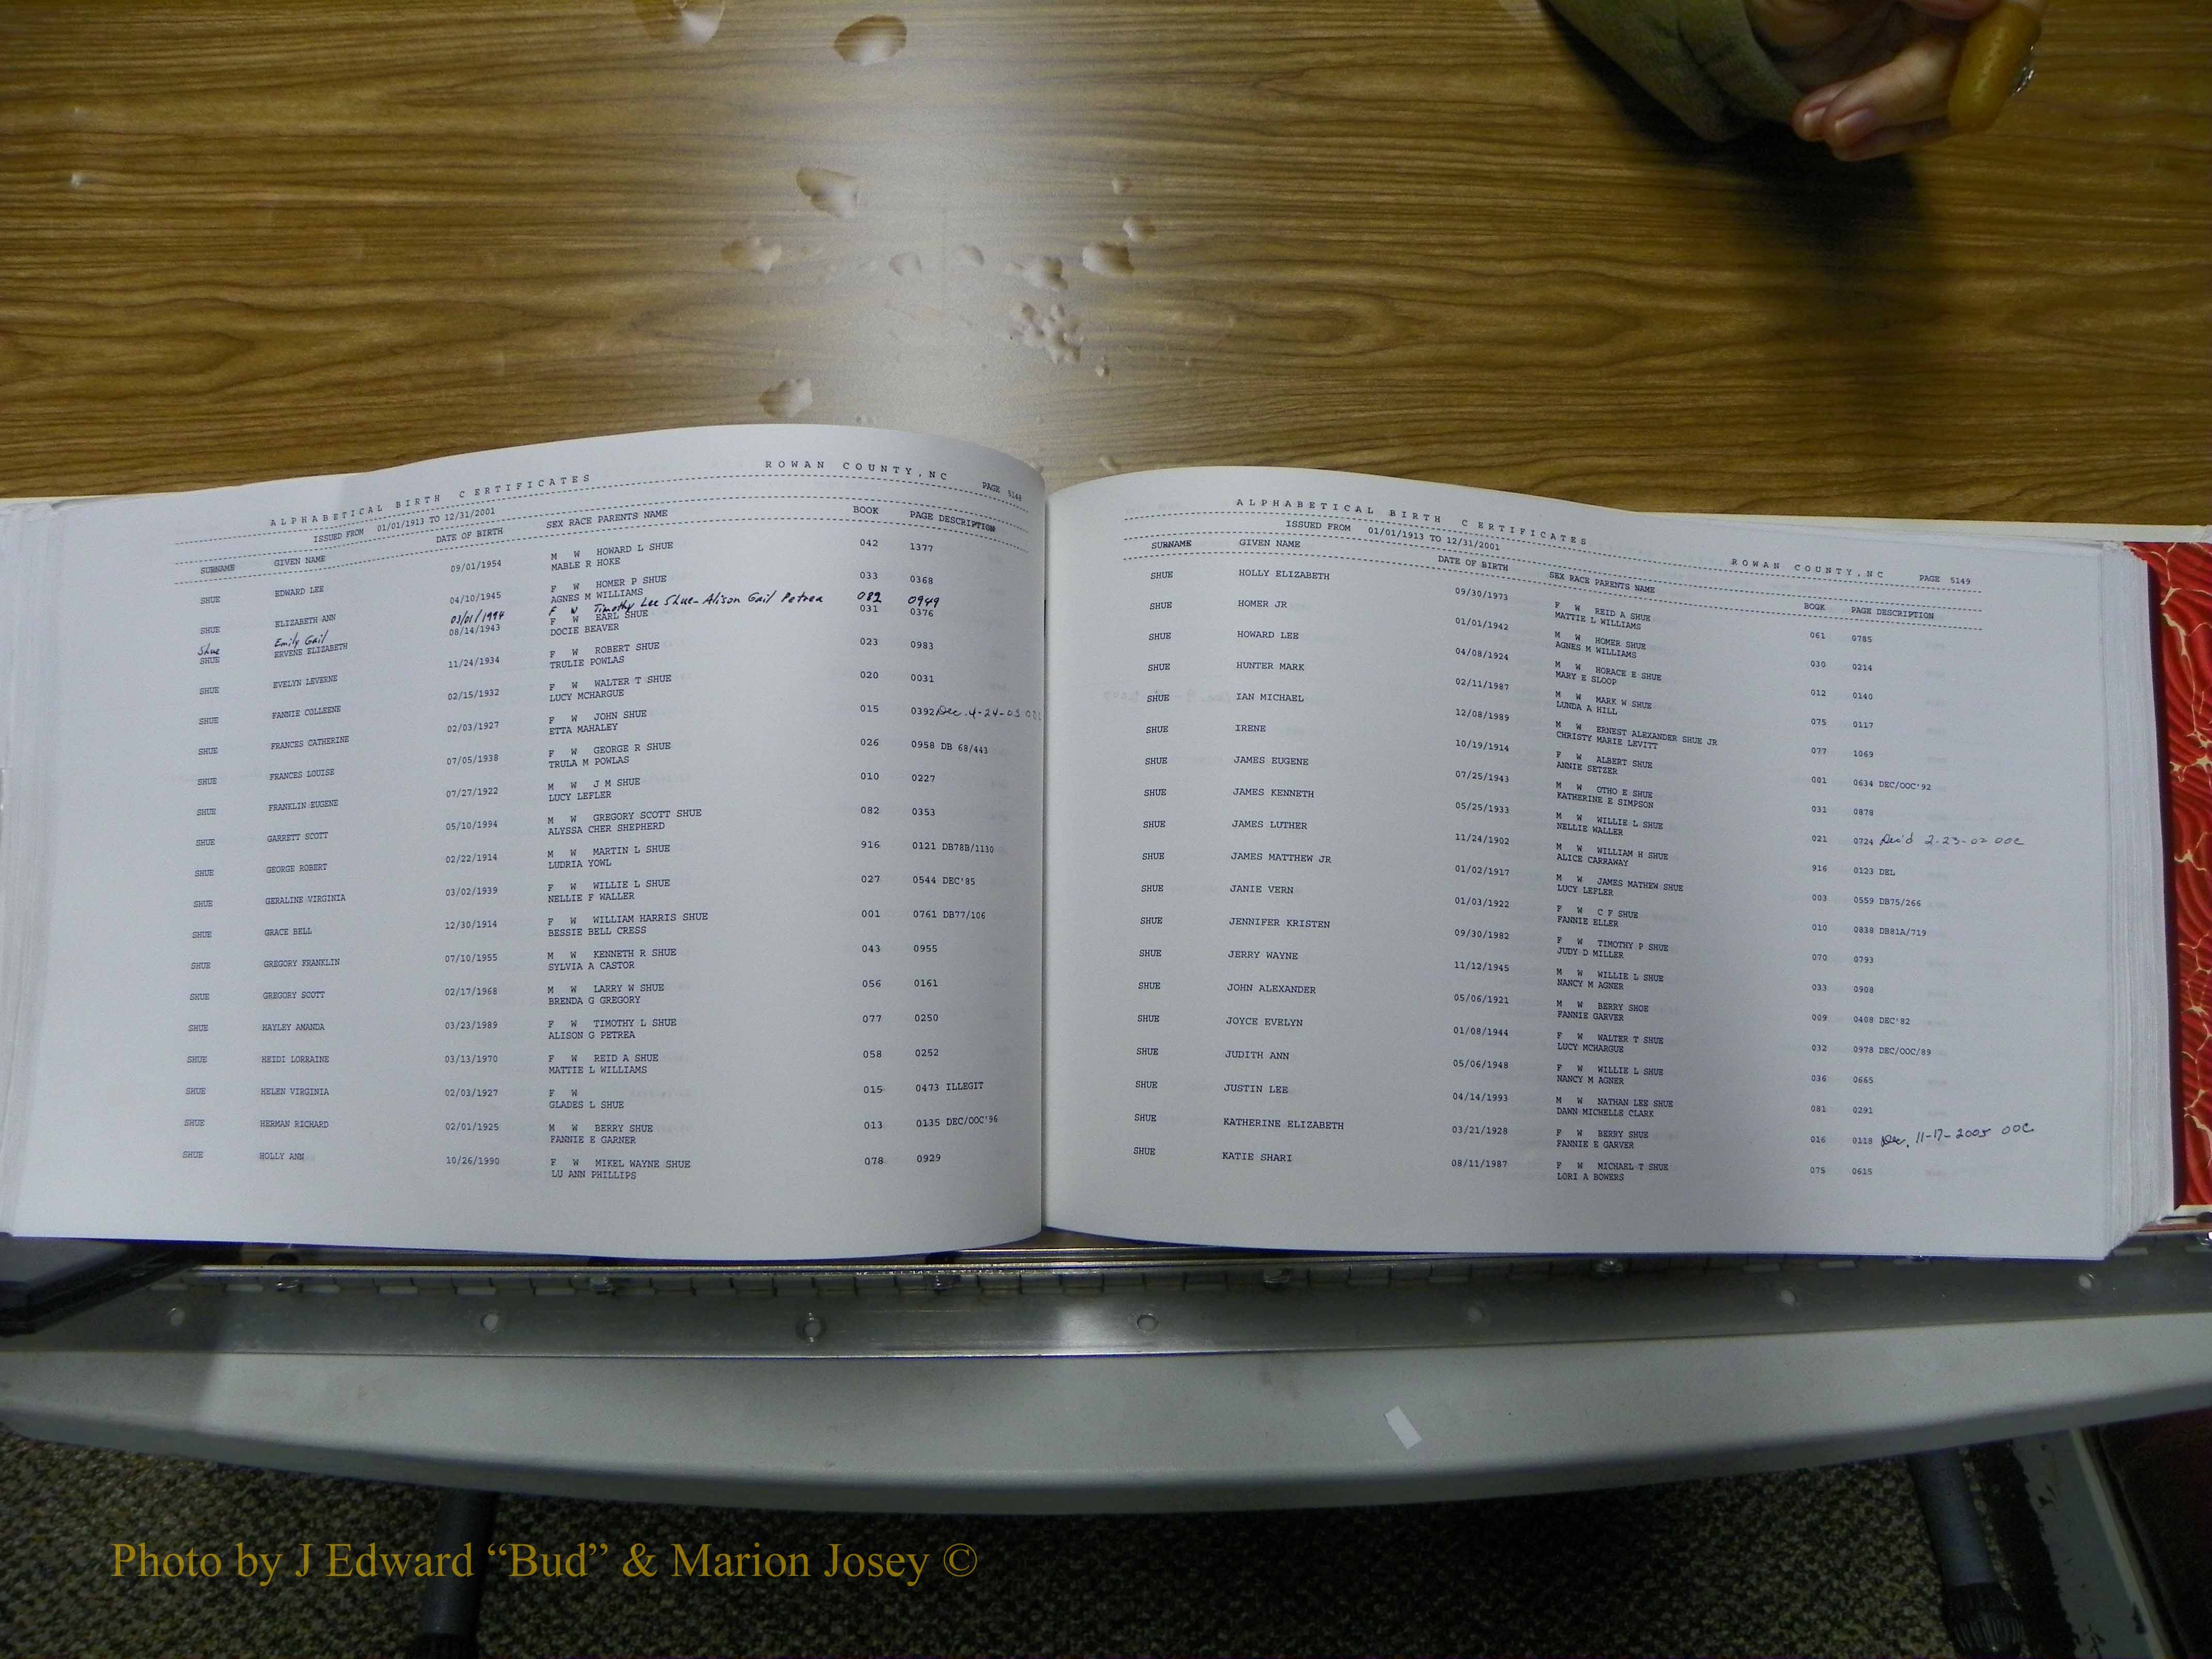 ALPHABETICAL BIRTH CERTIFICATES ROWAN COUNTY, NC PAGE 5148
ISSUED FROM 01/01/1913 TO 12/31/2001
SURNAME GIVEN NAME DATE OF BIRTH SEX RACE PARENTS NAME BOOK PAGE DESCRIPTION
SHUE EDWARD LEE 09/01/1954 M W HOWARD L SHUE 042 1377
MABLE R HOKE
SHUE ELIZABETH ANN 04/10/1945 F W HOMER P SHUE 033 0368
AGNES M WILLIAMS
Shue Emily Gail 03/01/1994 F W Timothy Lee Shue-Alison Gail Petrea 082 0949
SHUE ERVENE ELIZABETH 08/14/1943 F W EARL SHUE 031 0376
DOCIE BEAVER
SHUE EVELYN LEVERNE 11/24/1934 F W ROBERT SHUE 023 0983
TRULIE POWLAS
SHUE FANNIE COLLEENE 02/15/1932 F W WALTER T SHUE 020 0031
LUCY MCHARGUE
SHUE FRANCES CATHERINE 02/03/1927 F W JOHN SHUE 015 0392 Dec. 4-24-03
ETTA MAHALEY
SHUE FRANCES LOUISE 07/05/1938 F W GEORGE R SHUE 026 0958 DB 68/443
TRULA M POWLAS
SHUE FRANKLIN EUGENE 07/27/1922 M W J M SHUE 010 0227
LUCY LEFLER
SHUE GARRETT SCOTT 05/10/1994 M W GREGORY SCOTT SHUE 082 0353
ALYSSA CHER SHEPHERD
SHUE GEORGE ROBERT 02/22/1914 M W MARTIN L SHUE 916 0121 DB78B/1130
LUDRIA YOWL
SHUE GERALINE VIRGINIA 03/02/1939 F W WILLIE L SHUE 027 0544 DEC'85
NELLIE F WALLER
SHUE GRACE BELL 12/30/1914 F W WILLIAM HARRIS SHUE 001 0761 DB77/106
BESSIE BELL CRESS
SHUE GREGORY FRANKLIN 07/10/1955 M W KENNETH R SHUE 043 0955
SYLVIA A CASTOR
SHUE GREGORY SCOTT 02/17/1968 M W LARRY W SHUE 056 0161
BRENDA G GREGORY
SHUE HAYLEY AMANDA 03/23/1989 F W TIMOTHY L SHUE 077 0250
ALISON G PETREA
SHUE HEIDI LORRAINE 03/13/1970 F W REID A SHUE 058 0252
MATTIE L WILLIAMS
SHUE HELEN VIRGINIA 02/03/1927 F W 015 0473 ILLEGIT
GLADES L SHUE
SHUE HERMAN RICHARD 02/01/1925 M W BERRY SHUE 013 0135 DEC/OOC'96
FANNIE E GARNER
SHUE HOLLY ANN 10/26/1990 F W MIKEL WAYNE SHUE 078 0929
LU ANN PHILLIPS
ALPHABETICAL BIRTH CERTIFICATES ROWAN COUNTY, NC PAGE 5149
ISSUED FROM 01/01/1913 TO 12/31/2001
SURNAME GIVEN NAME DATE OF BIRTH SEX RACE PARENTS NAME BOOK PAGE DESCRIPTION
SHUE HOLLY ELIZABETH 09/30/1973 F W REID A SHUE 061 0785
MATTIE L WILLIAMS
SHUE HOMER JR 01/01/1942 M W HOMER SHUE 030 0214
AGNES M WILLIAMS
SHUE HOWARD LEE 04/08/1924 M W HORACE E SHUE 012 0140
MARY E SLOOP
SHUE HUNTER MARK 02/11/1987 M W MARK W SHUE 075 0117
LUNDA A HILL
SHUE IAN MICHAEL 12/08/1989 M W ERNEST ALEXANDER SHUE JR 077 1069
CHRISTY MARIE LEVITT
SHUE IRENE 10/19/1914 F W ALBERT SHUE 001 0634 DEC/OOC'92
ANNIE SETZER
SHUE JAMES EUGENE 07/25/1943 M W OTHO E SHUE 031 0878
KATHERINE E SIMPSON
SHUE JAMES KENNETH 05/25/1933 M W WILLIE L SHUE 021 0724 Dec'd 2-23-02 OOC
NELLIE WALLER
SHUE JAMES LUTHER 11/24/1902 M W WILLIAM H SHUE 916 0123 DEL
ALICE CARRAWAY
SHUE JAMES MATTHEW JR 01/02/1917 M W JAMES MATHEW SHUE 003 0559 DB75/266
LUCY LEFLER
SHUE JANIE VERN 01/03/1922 F W C F SHUE 010 0838 DB81A/719
FANNIE ELLER
SHUE JENNIFER KRISTEN 09/30/1982 F W TIMOTHY P SHUE 070 0793
JUDY D MILLER
SHUE JERRY WAYNE 11/12/1945 M W WILLIE L SHUE 033 0908
NANCY M AGNER
SHUE JOHN ALEXANDER 05/06/1921 M W BERRY SHOE 009 0408 DEC'82
FANNIE GARVER
SHUE JOYCE EVELYN 01/08/1944 F W WALTER T SHUE 032 0978 DEC/OOC/89
LUCY MCHARGUE
SHUE JUDITH ANN 05/06/1948 F W WILLIE L SHUE 036 0665
NANCY M AGNER
SHUE JUSTIN LEE 04/14/1993 M W NATHAN LEE SHUE 081 0291
DAWN MICHELLE CLARK
SHUE KATHERINE ELIZABETH 03/21/1928 F W BERRY SHUE 016 0118 Dec. 11-17-2005 OOC
FANNIE E GARVER
SHUE KATIE SHARI 08/11/1987 F W MICHAEL T SHUE 075 0615
LORI A BOWERS
Photo by J Edward “Bud” & Marion Josey ©